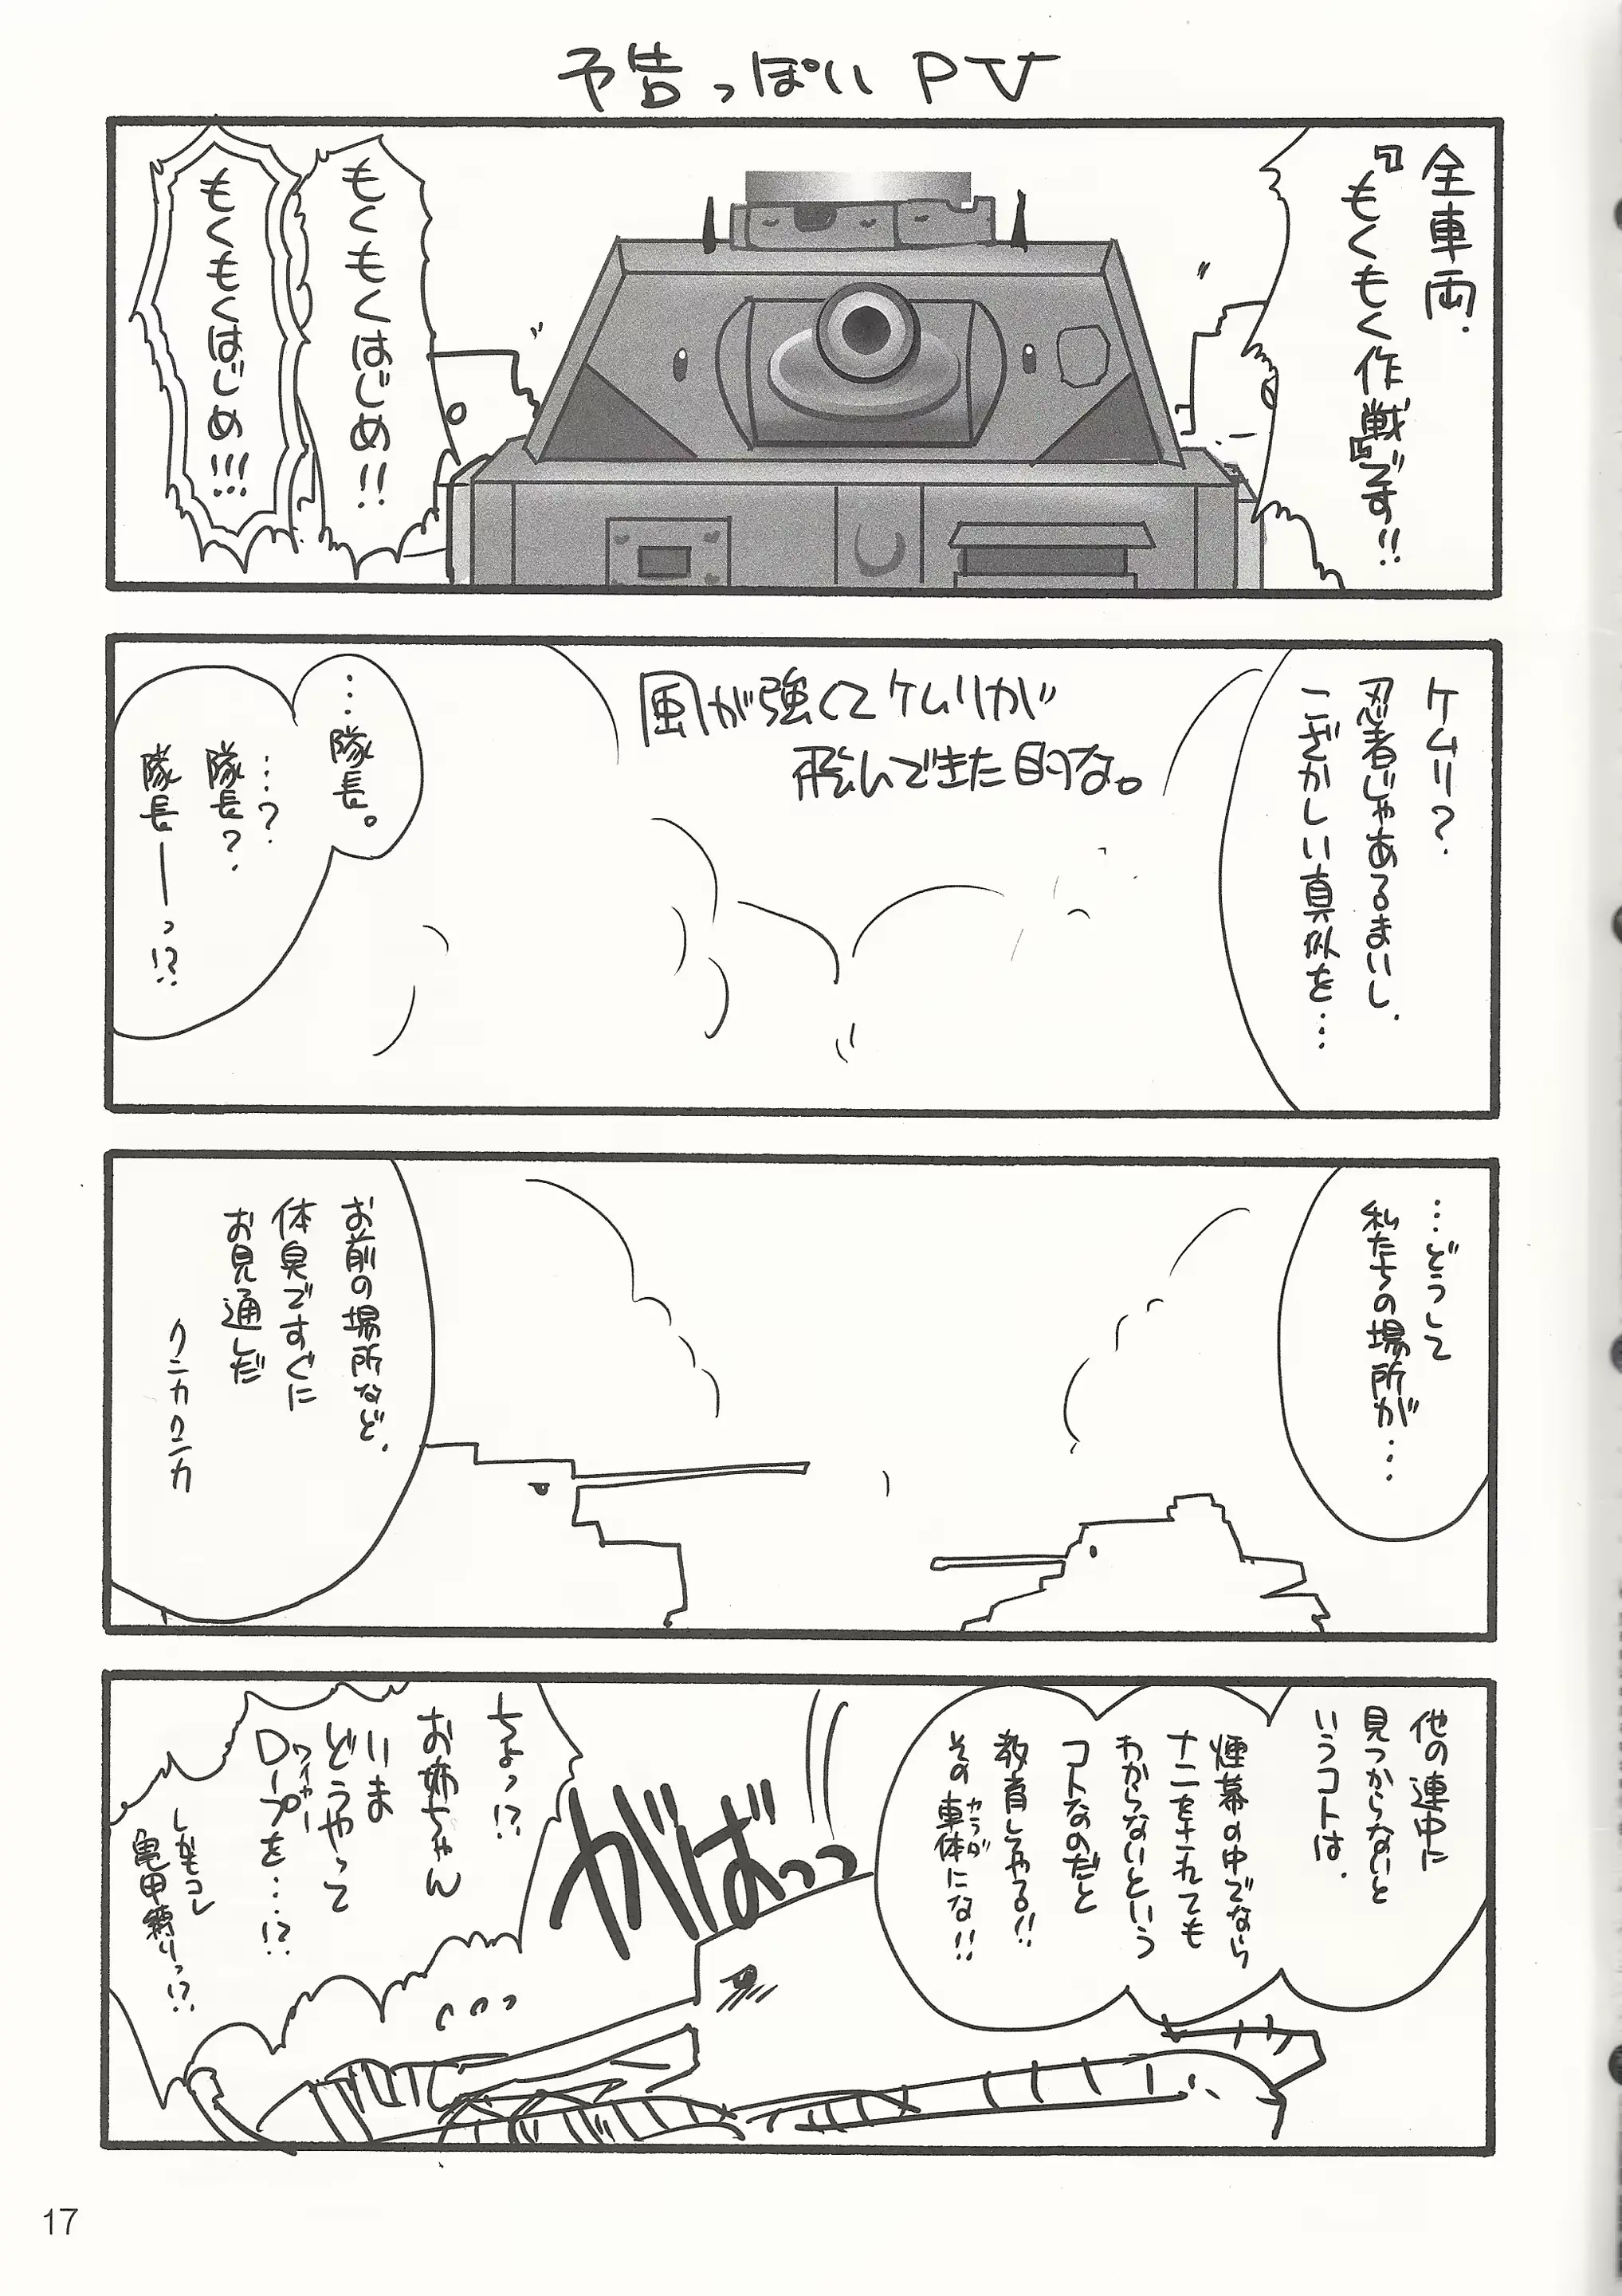 予告っぽいPV
全車両、
『もくもく作戦』です!!
もくもくはじめ!!
もくもくはじめ!!!
ケムリ?
忍者じゃあるまいし、
こざかしい真似を…
風が強くてケムリが
飛んできた的な。
…隊長。
…?
隊長?
隊長――っ!?
…どうして
私たちの場所が…
お前の場所など、
体臭ですぐに
お見通しだ
クニカクニカ
他の連中に
見つからないと
いうコトは、
煙幕の中でなら
ナニをされても
わからないという
コトなのだと
教育してやる!!
その車体にな!!
カラダ
がばっっ
ちょっ!?
お姉ちゃん
いま
どうやって
ワイヤー
ロープを…!?
しかもコレ
亀甲縛りっ!?
17